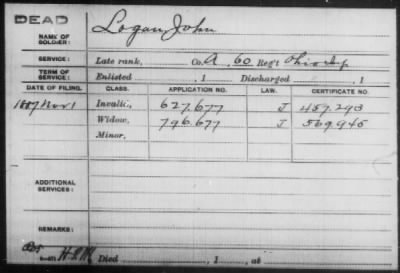 DEAD
NAME OF SOLDIER: Logan, John
SERVICE: Late rank, Co. A, 60 Reg't Ohio Inf
TERM OF SERVICE: Enlisted , 1 Discharged , 1
DATE OF FILING. CLASS. APPLICATION NO. LAW. CERTIFICATE NO.
1887 Nov 1 Invalid, 627.677 J 457.293
Widow, 796.677 J 569.945
Minor,
ADDITIONAL SERVICES:
REMARKS:
Died , 1 , at